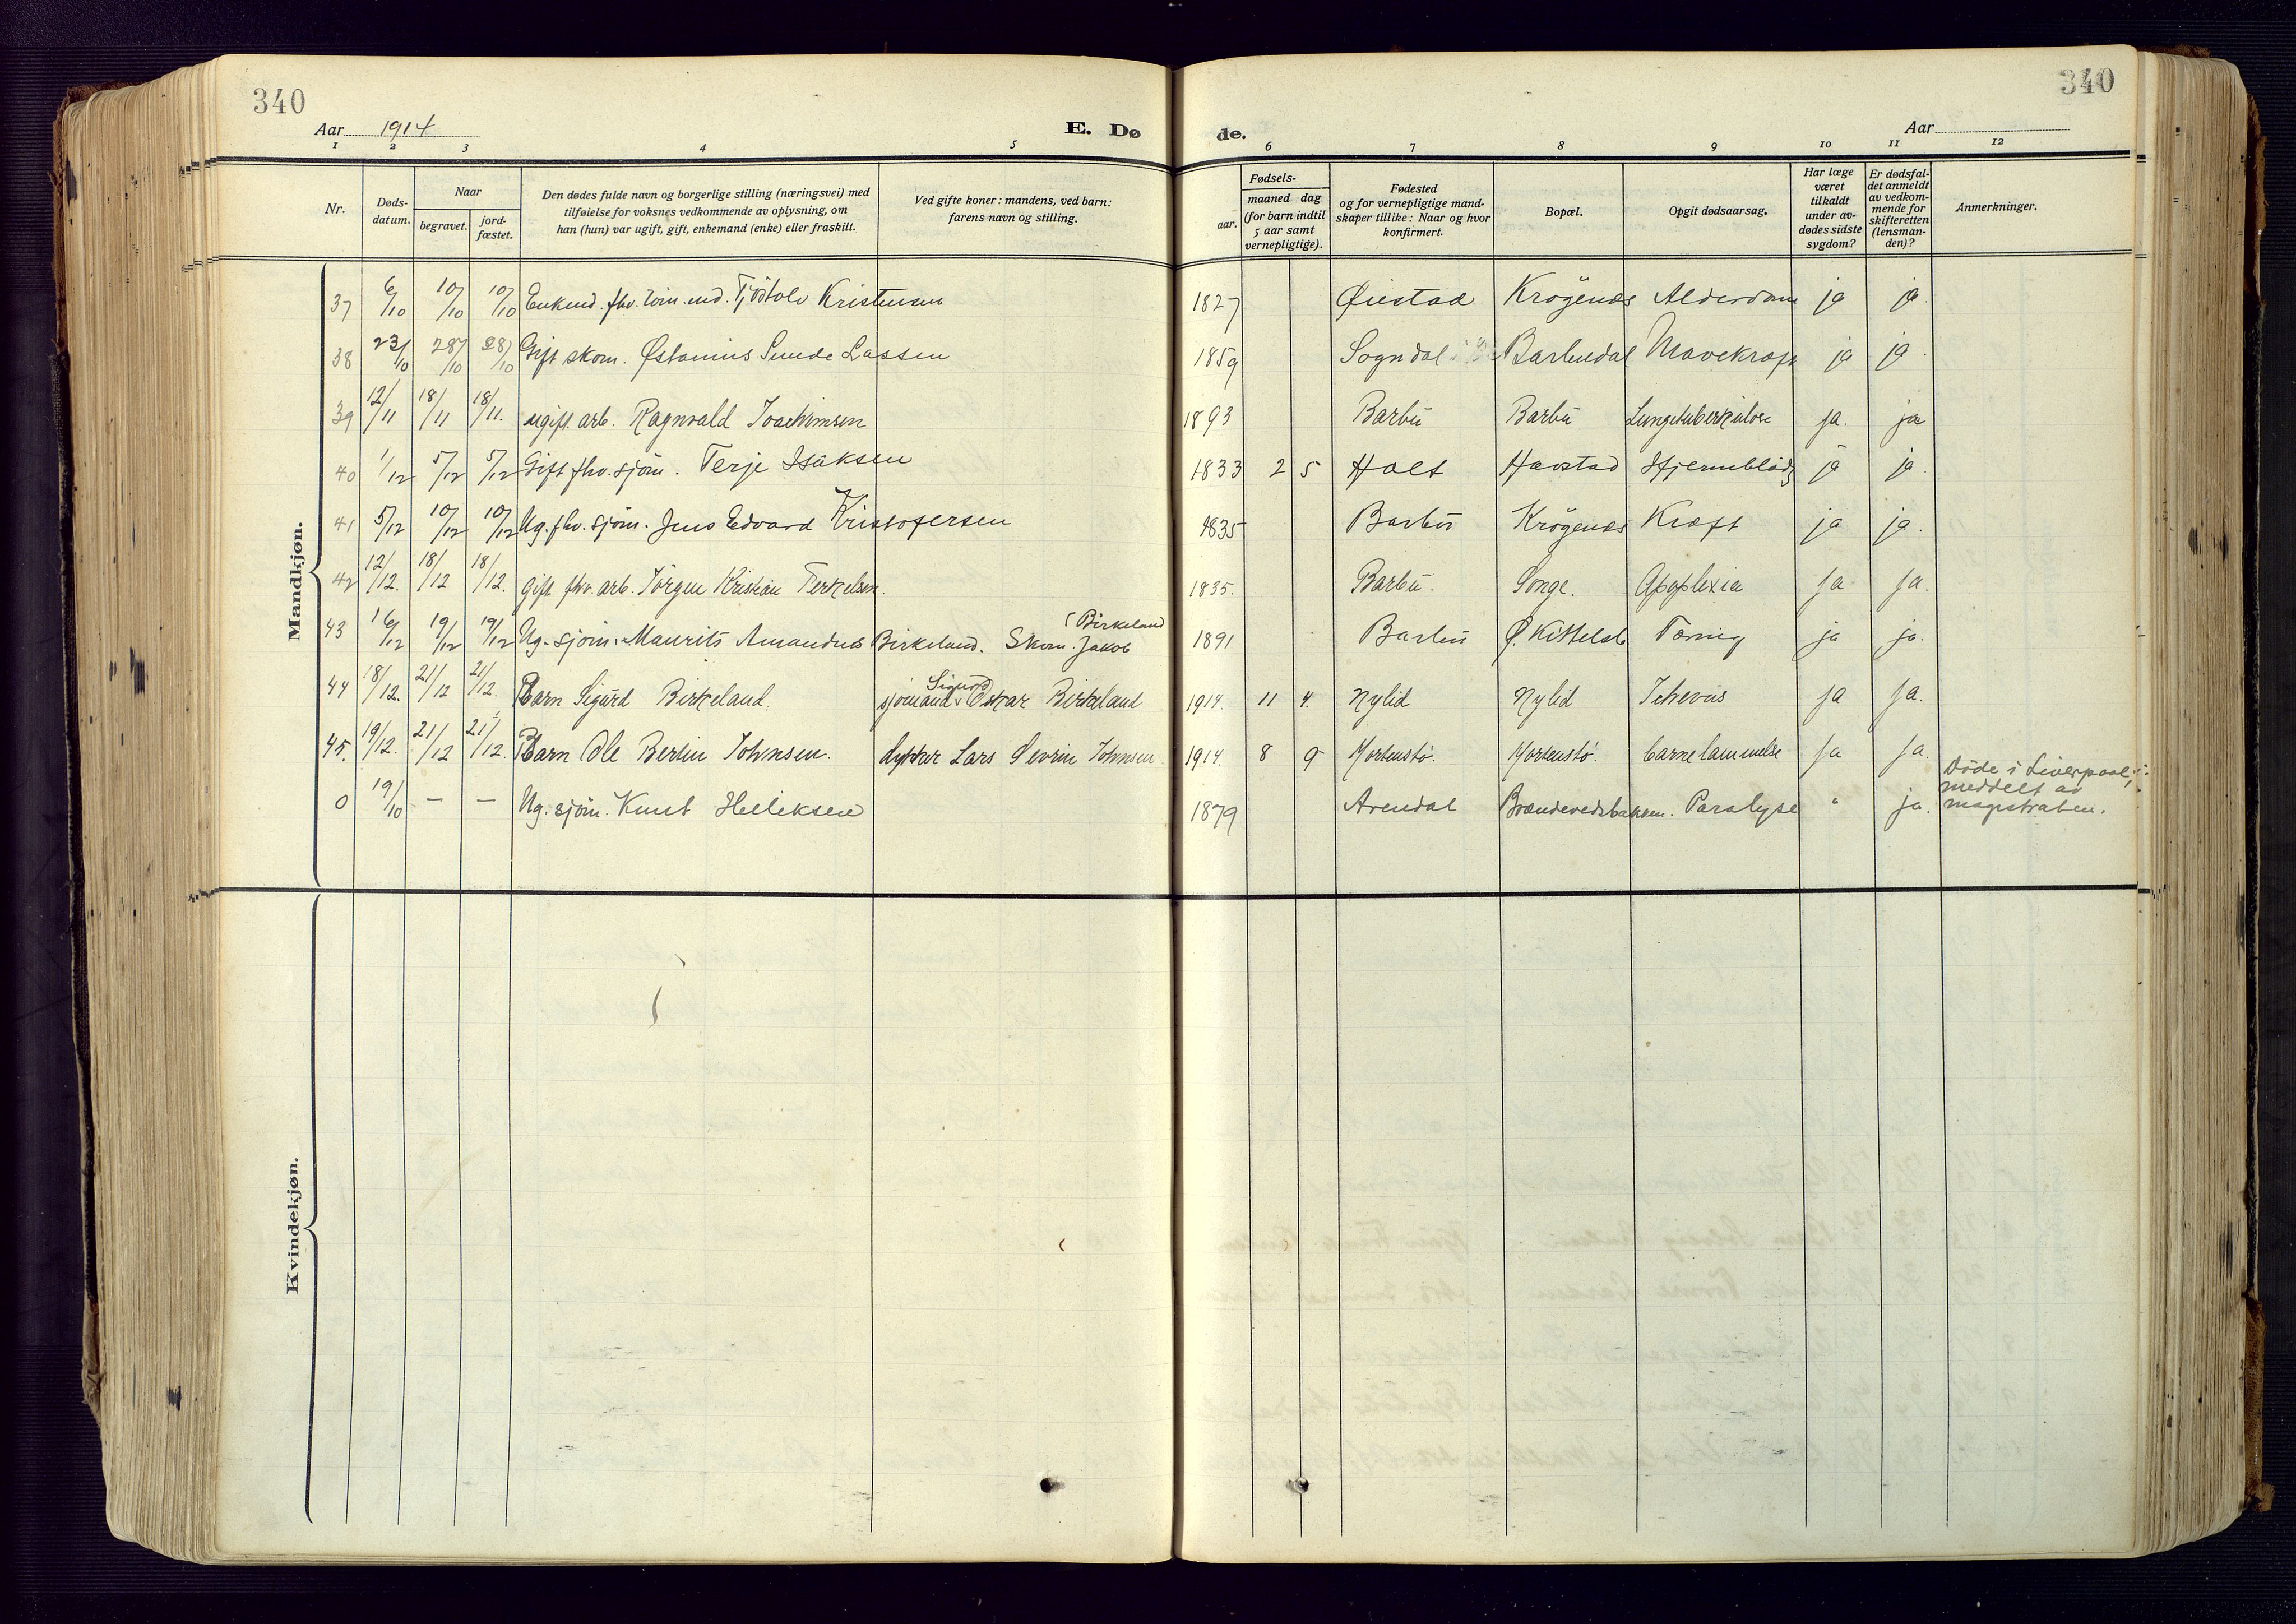 340
340
Aar 1914
E. Dø
de.
Aar
1 2 3 4 5 6 7 8 9 10 11 12
Nr.
Døds-
datum.
Naar
begravet.
jord-
fæstet.
Den dødes fulde navn og borgerlige stilling (næringsvei) med
tilføielse for voksnes vedkommende av oplysning, om
han (hun) var ugift, gift, enkemand (enke) eller fraskilt.
Ved gifte koner: mandens, ved barn:
farens navn og stilling.
Fødsels-
aar.
maaned dag
(for barn indtil
5 aar samt
vernepligtige).
Fødested
og for vernepligtige mand-
skaper tillike: Naar og hvor
konfirmert.
Bopæl.
Opgit dødsaarsag.
Har læge
været
tilkaldt
under av-
dødes sidste
sygdom?
Er dødsfal-
det anmeldt
av vedkom-
mende for
skifteretten
(lensman-
den)?
Anmerkninger.
Mandkjøn.
37 6/10 10/10 10/10 Enkemd. fhv. tøm.md. Tjøstolv Kristensen 1827 Øiestad Krögenæs Alderdom ja ja.
38 23/10 28/10 28/10 Gift skom. Østanius Sunde Lassen 1859 Sogndal Barbudal Mavekræft ja ja
39 12/11 18/11 18/11. ugift. arb. Ragnvald Joachimsen 1893 Barbu Barbu Lungetuberkulose ja. ja
40 1/12 5/12 5/12 Gift fhv. sjøm. Terje Isaksen 1833 2 5 Holt Havstad Hjerneblødg ja ja.
41 5/12 10/12 10/12 Ug. fhv. sjøm. Jens Edvard Kristofersen 1835 Barbu Krögenæs Kræft ja ja.
42 12/12. 18/12 18/12. gift fhv. arb. Jörgen Kristian Terkelsen. 1835. Barbu. Songe. Apoplexia ja ja.
43 16/12 19/12 19/12 Ug. sjøm. Maurits Amandus Birkeland. Skom. Jakob (Birkeland 1891 Barbu Ø. Kittelsb Tæring ja ja.
44 18/12. 21/12 21/12. Barn Sigurd Birkeland. sjömand Sigurd Oskar Birkeland 1914. 11 4. Nylid Nylid Icterus ja ja.
45. 19/12. 21/12 21/12. Barn Ole Bertin Johnsen. Lars Severin Johnsen 1914. 8 9 Mortenstö. Mortenstö. barnelammelse ja ja.
0 19/10 — — Ug. sjøm. Knut Helleksen 1879 Arendal Brændevedsbakken. Paralyse " ja. Døde i Liverpool,
meddelt av
magistraten.
Kvindekjøn.